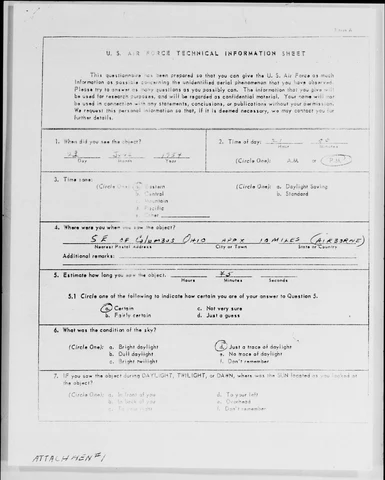 U. S. AIR FORCE TECHNICAL INFORMATION SHEET
This questionnaire has been prepared so that you can give the U. S. Air Force as much
information as possible concerning the unidentified aerial phenomenon that you have observed.
Please try to answer as many questions as you possibly can. The information that you give will
be used for research purposes, and will be regarded as confidential material. Your name will not
be used in connection with any statements, conclusions, or publications without your permission.
We request this personal information so that, if it is deemed necessary, we may contact you for
further details.
1. When did you see the object?
23 June
Day Month Year
2. Time of day:
Hour Minutes
(Circle One): A.M. or P.M.
3. Time zone:
(Circle One): a. Eastern
b. Central
c. Mountain
d. Pacific
e. Other
(Circle One): a. Daylight Saving
b. Standard
4. Where were you when you saw the object?
SE OF COLUMBUS OHIO APPX 10 MILES (AIRBORNE)
Nearest Postal Address City or Town State or Country
Additional remarks:
5. Estimate how long you saw the object. 45
Hours Minutes Seconds
5.1 Circle one of the following to indicate how certain you are of your answer to Question 5.
a. Certain c. Not very sure
b. Fairly certain d. Just a guess
6. What was the condition of the sky?
(Circle One): a. Bright daylight d. Just a trace of daylight
b. Dull daylight e. No trace of daylight
c. Bright twilight f. Don't remember
7. IF you saw the object during DAYLIGHT, TWILIGHT, or DAWN, where was the SUN located as you looked at
the object?
(Circle One): a. In front of you d. To your left
b. In back of you e. Overhead
c. To your right f. Don't remember
ATTACHMENT #1